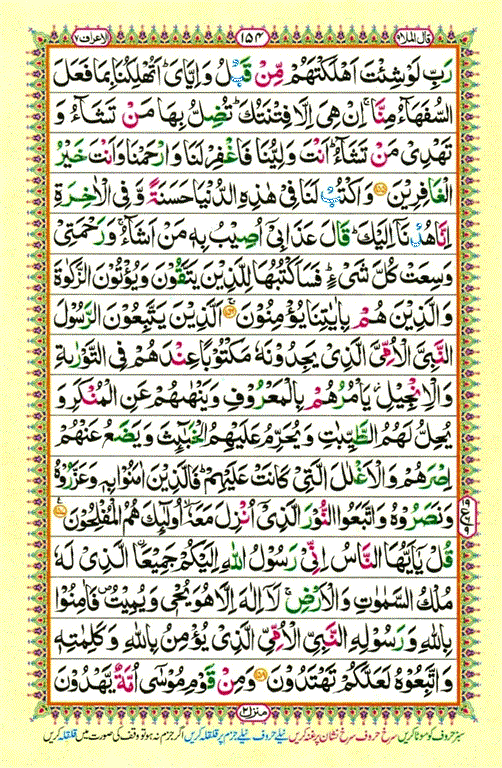 قال الملا ٩
١٥٤
الاعراف ٧
رَبِّ لَوۡ شِئۡتَ اَهۡلَكۡتَهُمۡ مِّنۡ قَبۡلُ وَاِيَّاىَ ؕ اَتُهۡلِكُنَا بِمَا فَعَلَ
السُّفَهَآءُ مِنَّا ۚ اِنۡ هِىَ اِلَّا فِتۡنَتُكَ ؕ تُضِلُّ بِهَا مَنۡ تَشَآءُ وَ
تَهۡدِىۡ مَنۡ تَشَآءُ ؕ اَنۡتَ وَلِيُّنَا فَاغۡفِرۡ لَنَا وَارۡحَمۡنَا وَاَنۡتَ خَيۡرُ
الۡغَافِرِيۡنَ ﴿۱۵۵﴾ وَاكۡتُبۡ لَنَا فِىۡ هٰذِهِ الدُّنۡيَا حَسَنَةً وَّفِى الۡاٰخِرَةِ
اِنَّا هُدۡنَاۤ اِلَيۡكَ ؕ قَالَ عَذَابِىۡۤ اُصِيۡبُ بِهٖ مَنۡ اَشَآءُ ۚ وَرَحۡمَتِىۡ
وَسِعَتۡ كُلَّ شَىۡءٍ ؕ فَسَاَكۡتُبُهَا لِلَّذِيۡنَ يَتَّقُوۡنَ وَيُؤۡتُوۡنَ الزَّكٰوةَ
وَالَّذِيۡنَ هُمۡ بِاٰيٰتِنَا يُؤۡمِنُوۡنَ ﴿۱۵۶﴾ اَلَّذِيۡنَ يَتَّبِعُوۡنَ الرَّسُوۡلَ
النَّبِىَّ الۡاُمِّىَّ الَّذِىۡ يَجِدُوۡنَهٗ مَكۡتُوۡبًا عِنۡدَهُمۡ فِى التَّوۡرٰٮةِ
وَالۡاِنۡجِيۡلِ يَاۡمُرُهُمۡ بِالۡمَعۡرُوۡفِ وَيَنۡهٰٮهُمۡ عَنِ الۡمُنۡكَرِ وَ
يُحِلُّ لَهُمُ الطَّيِّبٰتِ وَيُحَرِّمُ عَلَيۡهِمُ الۡخَبٰٓئِثَ وَيَضَعُ عَنۡهُمۡ
اِصۡرَهُمۡ وَالۡاَغۡلٰلَ الَّتِىۡ كَانَتۡ عَلَيۡهِمۡ ؕ فَالَّذِيۡنَ اٰمَنُوۡا بِهٖ وَعَزَّرُوۡهُ
وَنَصَرُوۡهُ وَاتَّبَعُوا النُّوۡرَ الَّذِىۡۤ اُنۡزِلَ مَعَهٗۤ ۙ اُولٰٓئِكَ هُمُ الۡمُفۡلِحُوۡنَ ﴿۱۵۷﴾
قُلۡ يٰۤاَيُّهَا النَّاسُ اِنِّىۡ رَسُوۡلُ اللّٰهِ اِلَيۡكُمۡ جَمِيۡعًا ۨالَّذِىۡ لَهٗ
مُلۡكُ السَّمٰوٰتِ وَالۡاَرۡضِ ۚ لَاۤ اِلٰهَ اِلَّا هُوَ يُحۡىٖ وَيُمِيۡتُ ۖ فَاٰمِنُوۡا
بِاللّٰهِ وَرَسُوۡلِهِ النَّبِىِّ الۡاُمِّىِّ الَّذِىۡ يُؤۡمِنُ بِاللّٰهِ وَكَلِمٰتِهٖ
وَاتَّبِعُوۡهُ لَعَلَّكُمۡ تَهۡتَدُوۡنَ ﴿۱۵۸﴾ وَمِنۡ قَوۡمِ مُوۡسٰٓى اُمَّةٌ يَّهۡدُوۡنَ
منزل ٢
سبز حروف کو موٹا کریں سرخ حروف سرخ نشان پر غنہ کریں نیلے حروف نیلے جزم پر قلقلہ کریں اگر جزم نہ ہو تو وقف کی صورت میں قلقلہ کریں